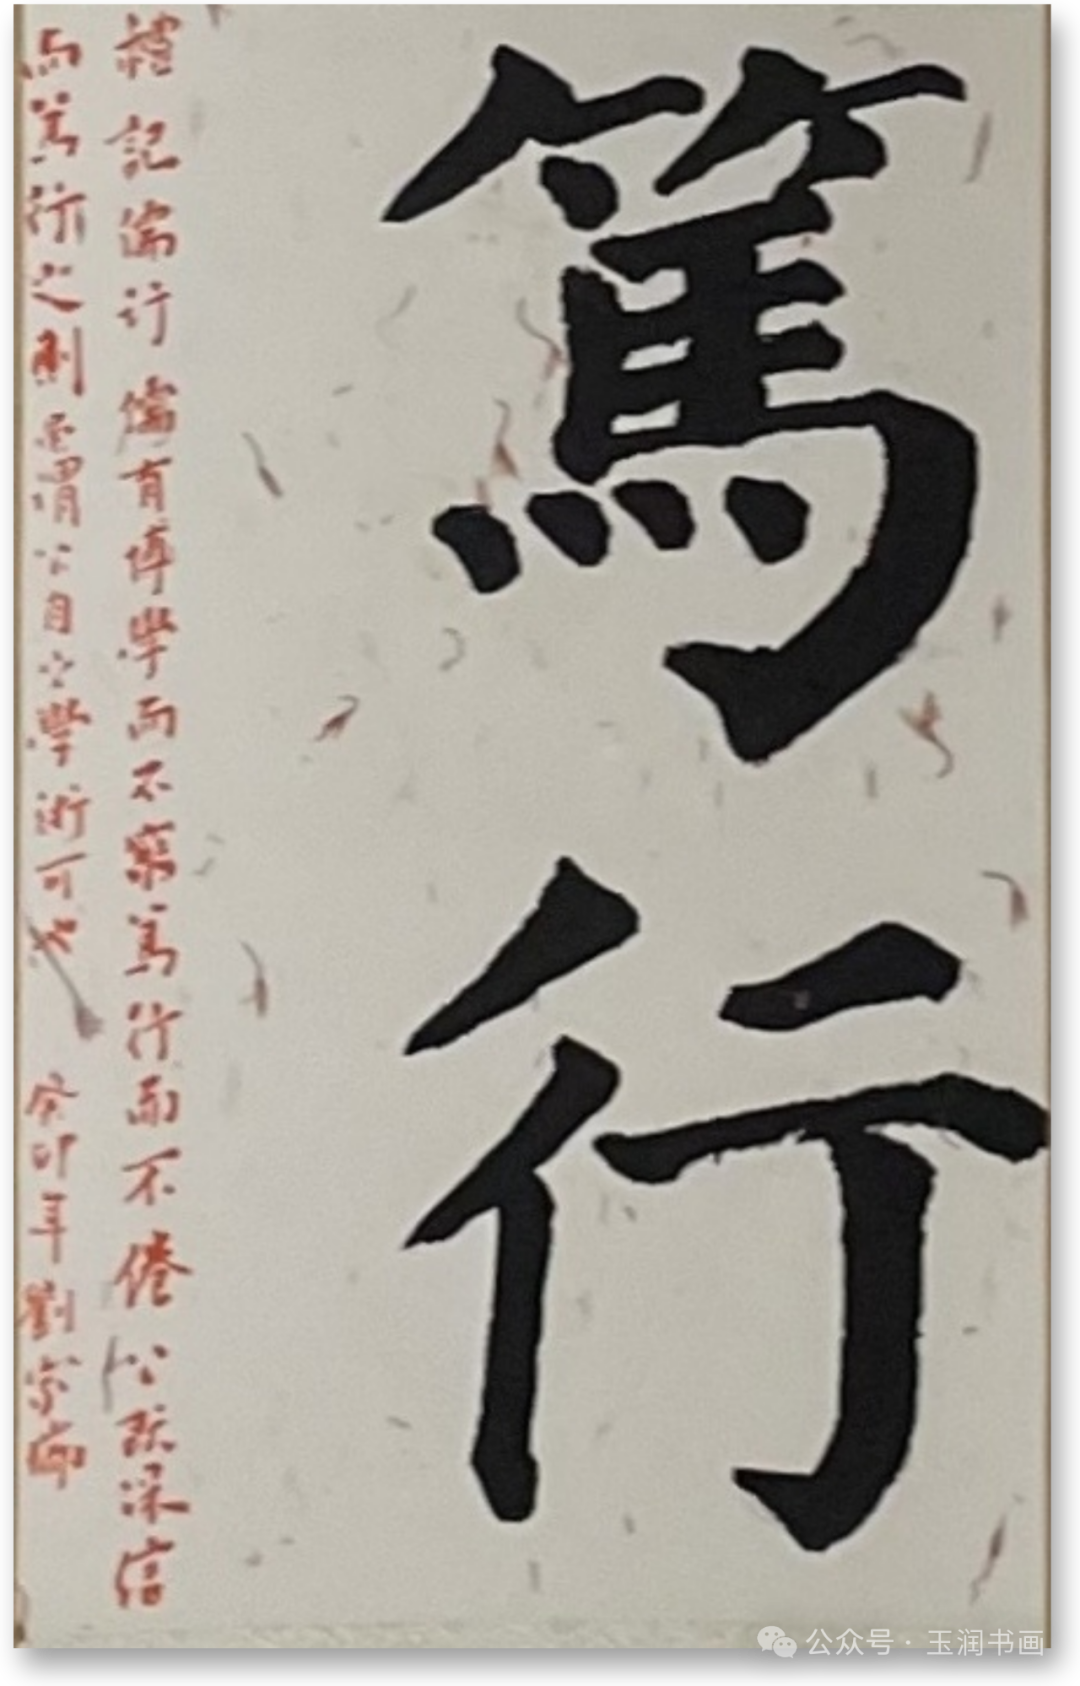 篤行
禮記儒行儒有博學而不窮篤行而不倦公既深信
而篤行之則所謂公自公學術可也
癸卯年劉宗
公众号·玉润书画